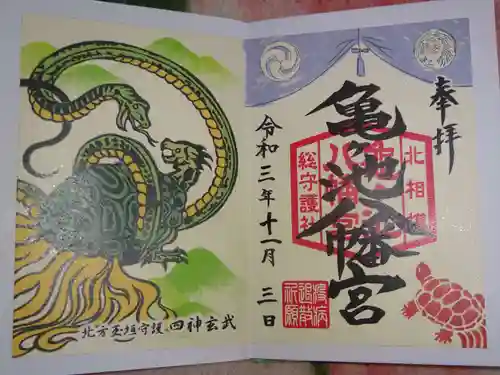 奉拝
北相模
亀ヶ池八幡宮
総守護社
令和三年十一月三日
疫病
退散
祈願
北方守護 四神玄武